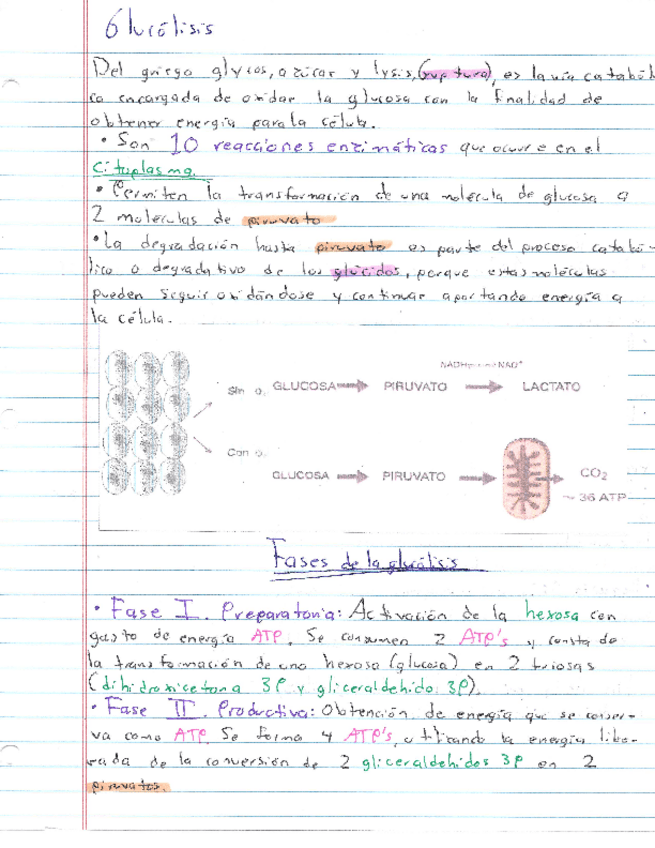 Glucólisis
Del griego glycos, azúcar y lysis, (ruptura), es la vía catabóli
ca encargada de oxidar la glucosa con la finalidad de
obtener energía para la célula.
• Son 10 reacciones enzimáticas que ocurre en el
citoplasma.
• Permiten la transformación de una molécula de glucosa a
2 moléculas de piruvato
• La degradación hasta piruvato es parte del proceso catabó-
lico o degradativo de los glúcidos, porque estas moléculas
pueden seguir oxidándose y continuar aportando energía a
la célula.
NADH NAD+
Sin O₂ GLUCOSA PIRUVATO LACTATO
Con O₂
GLUCOSA PIRUVATO CO2
~ 36 ATP
Fases de la glucólisis
• Fase I. Preparatoria: Activación de la hexosa con
gasto de energía ATP. Se consumen 2 ATP's y consta de
la transformación de una hexosa (glucosa) en 2 triosas
(dihidroxicetona 3P y gliceraldehido 3P).
• Fase II. Productiva: Obtención de energía que se conser-
va como ATP. Se forma 4 ATP's, utilizando la energía libe-
rada de la conversión de 2 gliceraldehidos 3P en 2
piruvatos.